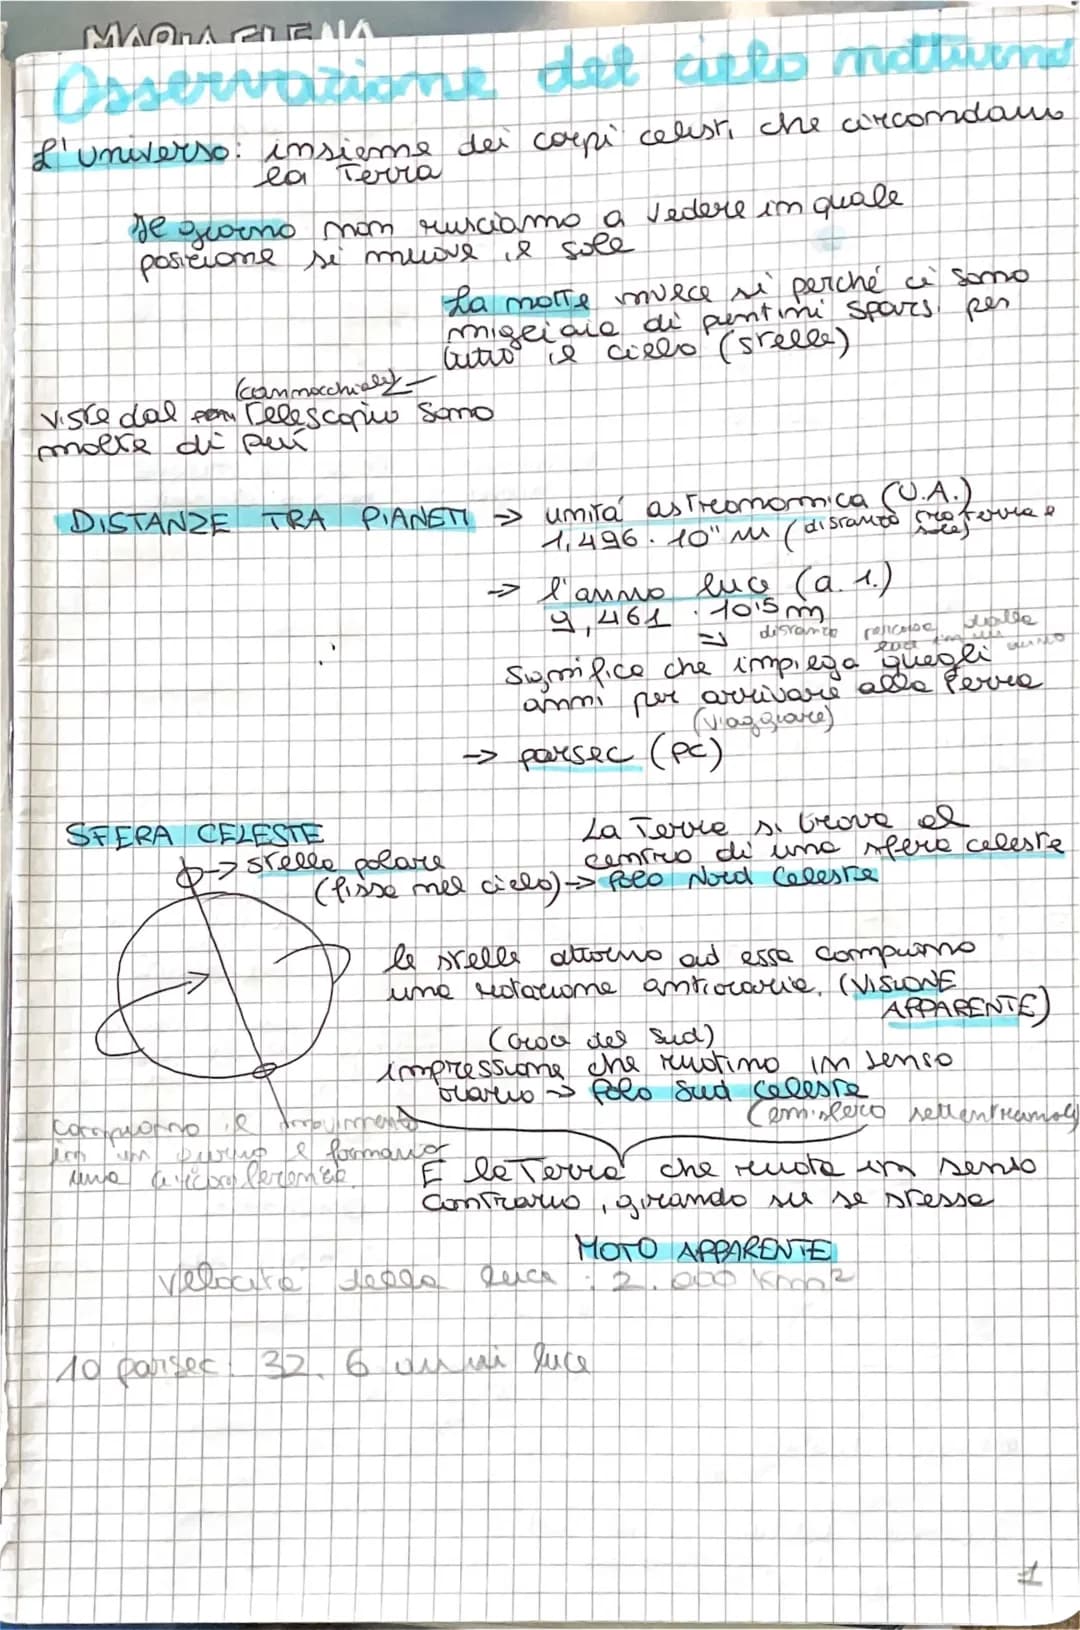 MARIA ELENA
Osservazione del cielo notturno
L'universo: insieme dei corpi celesti che circondano
la Terra
Se giorno non riusciamo a vedere in quale
posizione si muove il sole
La notte invece si perché ci sono
migliaia di puntini sparsi per
tutto il cielo (stelle)
(cannocchiale)
viste dal Telescopio sono
molte di più
DISTANZE TRA PIANETI → unità astronomica (U.A.)
1,496 · 10¹¹ m (distanza tra terra e
sole)
→ l'anno luce (a. l.)
9,461 · 10¹⁵ m
⇒ distanza percorsa dalla
luce in un anno
Significa che impiega quegli
anni per arrivare alla Terra
(viaggiare)
→ parsec (pc)
SFERA CELESTE
La Terra si trova al
centro di una sfera celeste
→ stella polare
(fissa nel cielo) → Polo Nord Celeste
le stelle attorno ad essa compiono
una rotazione antioraria, (VISIONE
APPARENTE)
(croce del Sud)
impressione che ruotino in senso
orario → Polo Sud Celeste
(emisfero settentrionale)
compiono il movimento
in un giorno e formano
una circonferenza.
È la Terra che ruota in senso
contrario, girando su se stessa
MOTO APPARENTE
Velocità della luce : 2. 000 km²
10 parsec: 32. 6 anni luce
1